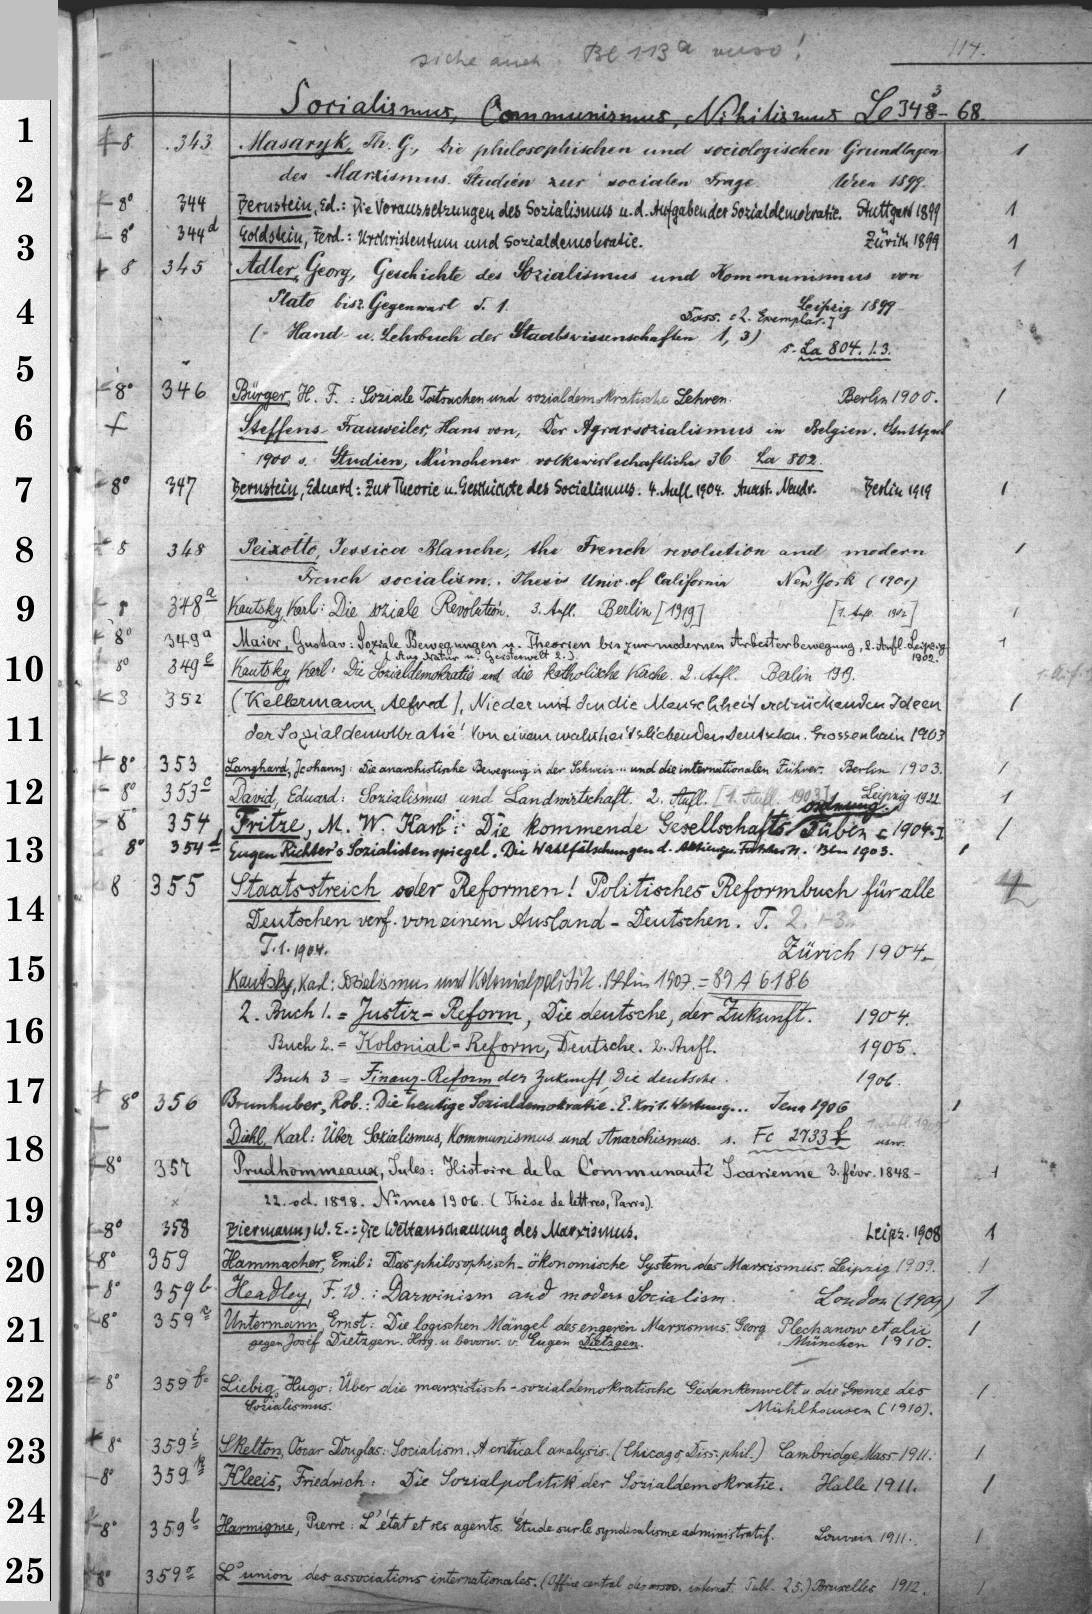 siehe auch Bl 113a verso! 114.
Socialismus, Communismus, Nihilismus Le 343-68.
1
+ 8 343 Masaryk, Th. G., Die philosophischen und sociologischen Grundlagen 1
2 des Marxismus. Studien zur socialen Frage. Wien 1899.
8° 344 Bernstein, Ed.: Die Voraussetzungen des Sozialismus u. d. Aufgaben der Sozialdemokratie. Stuttgart 1899 1
3 8° 344d Goldstein, Ferd.: Urchristentum und Sozialdemokratie. Zürich 1899 1
+ 8 345 Adler, Georg, Geschichte des Sozialismus und Kommunismus von 1
4 Plato bis z. Gegenwart T. 1. Leipzig 1899
Dass. [2. Exemplar.]
(= Hand- u. Lehrbuch der Staatswissenschaften 1, 3)
s. La 804. 1.3.
5
8° 346 Bürger, H. F.: Soziale Tatsachen und sozialdemokratische Lehren. Berlin 1900. 1
6 Steffens-Frauweiler, Hans von, Der Agrarsozialismus in Belgien. Stuttgart
1900 s. Studien, Münchener volkswirtschaftliche 36 La 802.
7 8° 347 Bernstein, Eduard: Zur Theorie u. Geschichte des Socialismus. 4. Aufl. 1904. Anast. Neudr. Berlin 1919 1
8 + 8 348 Peixotto, Jessica Blanche, the French revolution and modern 1
French socialism. Thesis Univ. of California New York (1901)
9 8 348a Kautsky, Karl: Die soziale Revolution. 3. Aufl. Berlin [1919] [1. Aufl. 1902] 1
8° 349a Maier, Gustav: Soziale Bewegungen u. Theorien bis zur modernen Arbeiterbewegung, 2. Aufl. Leipzig 1
(Aus Natur u. Geisteswelt 2.) 1902.
10 8° 349c Kautsky Karl: Die Sozialdemokratie und die katholische Kirche. 2. Aufl. Berlin 1919.
352 (Kellermann, Alfred), Nieder mit den die Menschheit erdrückenden Ideen 1
11 der Sozialdemokratie! Von einem wahrheitsliebenden Deutschen. Grossenhain 1903
+ 8° 353 Langhard, J[ohann]: Die anarchistische Bewegung in der Schweiz... und die internationalen Führer. Berlin 1903. 1
12 8° 353c David, Eduard: Sozialismus und Landwirtschaft. 2. Aufl. [1. Aufl. 1903] Leipzig 1922 1
ordnung.
8° 354 Fritze, M. W. Karl: Die kommende Gesellschafts/ Tübin 1904. 1
13 8° 354d Eugen Richter's Sozialistenspiegel. Die Wahlfälschungen d. Bln 1903. 1
8 355 Staatsstreich oder Reformen! Politisches Reformbuch für alle 4
14 Deutschen verf. von einem Ausland-Deutschen. T. 2. 1-3.
T. 1. 1904. Zürich 1904.
15 Kautsky, Karl: Sozialismus und Kolonialpolitik. Bln 1907. = 89 A 6186
16 2. Buch 1. = Justiz-Reform, Die deutsche, der Zukunft. 1904.
Buch 2. = Kolonial-Reform, Deutsche. 2. Aufl. 1905.
Buch 3 = Finanz-Reform der Zukunft, Die deutsche. 1906.
17 + 8° 356 Brunhuber, Rob.: Die heutige Sozialdemokratie. E. krit. Wertung... Jena 1906 1
18 Diehl, Karl: Über Sozialismus, Kommunismus und Anarchismus. s. Fc 2733 f usw.
8° 357 Prudhommeaux, Jules: Histoire de la Communauté Icarienne 3. févr. 1848- 1
19 22. od. 1898. Nîmes 1906. (Thèse de lettres, Paris).
8° 358 Biermann, W. E.: Die Weltanschauung des Marxismus. Leipz. 1908 1
20 8° 359 Hammacher, Emil: Das philosophisch-ökonomische System des Marxismus. Leipzig 1909. 1
8° 359b Headley, F. W.: Darwinism and modern Socialism. London (1909) 1
21 8° 359e Untermann, Ernst: Die logischen Mängel des engeren Marxismus. Georg Plechanow et alii 1
gegen Josef Dietzgen. Hrsg. u. bevorw. v. Eugen Dietzgen. München 1910.
22 8° 359f Liebig, Hugo: Über die marxistisch-sozialdemokratische Gedankenwelt u. die Grenze des 1
Sozialismus. Mühlhausen (1910).
23 + 8° 359i Skelton, Oscar Douglas: Socialism. A critical analysis. (Chicago, Diss. phil.) Cambridge, Mass. 1911. 1
8° 359k Kleeis, Friedrich: Die Sozialpolitik der Sozialdemokratie. Halle 1911. 1
24 8° 359l Harmignie, Pierre: L'état et ses agents. Etude sur le syndicalisme administratif. Louvain 1911. 1
25 8° 359o L'union des associations internationales. (Office central des assoc. internat. Publ. 25.) Bruxelles 1912. 1